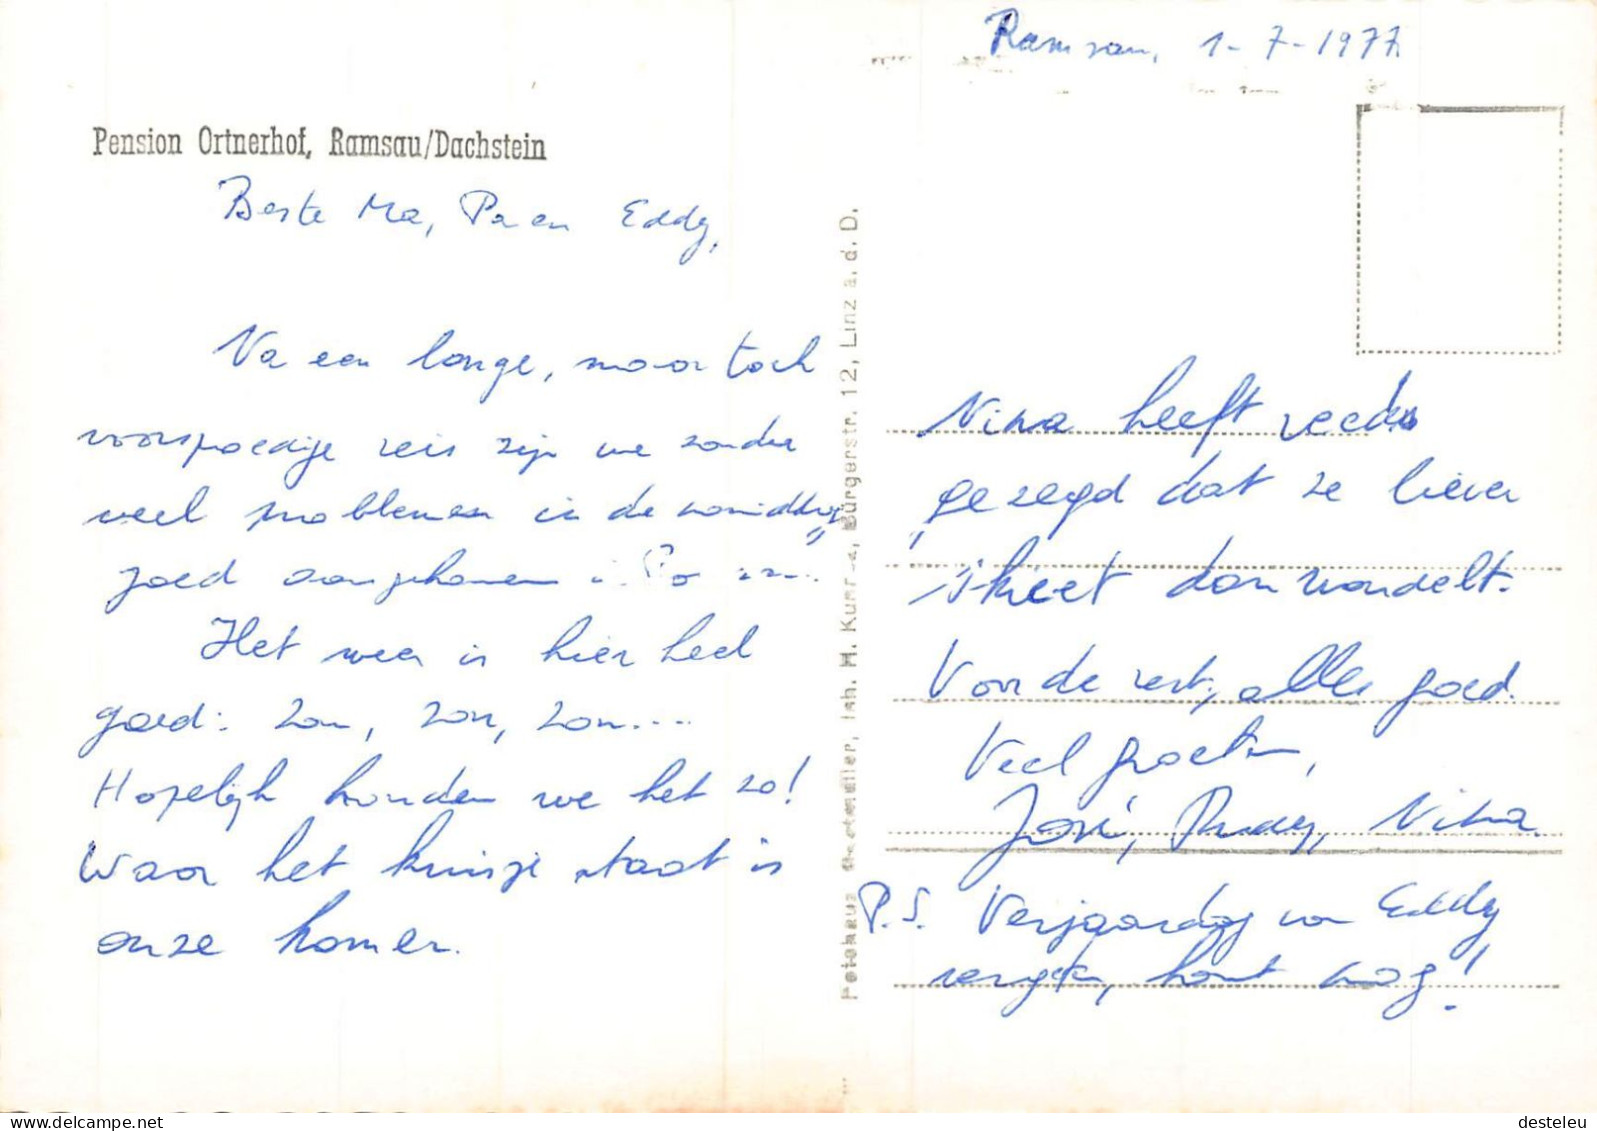 Ramsau, 1-7-1977
Pension Ortnerhof, Ramsau/Dachstein
Beste Ma, Pa en Eddy,
Na een lange, maar toch
voorspoedige reis zijn we zonder
veel problemen in de namiddag
goed aangekomen
Het weer is hier heel
goed: zon, zon, zon....
Hopelijk houden we het zo!
Waar het kruisje staat is
onze kamer.
Petehaus Inh. H. Bürgerstr. 12, Linz a. d. D.
Nina heeft reeds
gezegd dat ze liever
"skieet" dan wandelt.
Voor de rest, alles goed.
Veel groeten,
José, Rudy, Nina
P.S. Verjaardag van Eddy
vergeten, komt nog!
desteleu